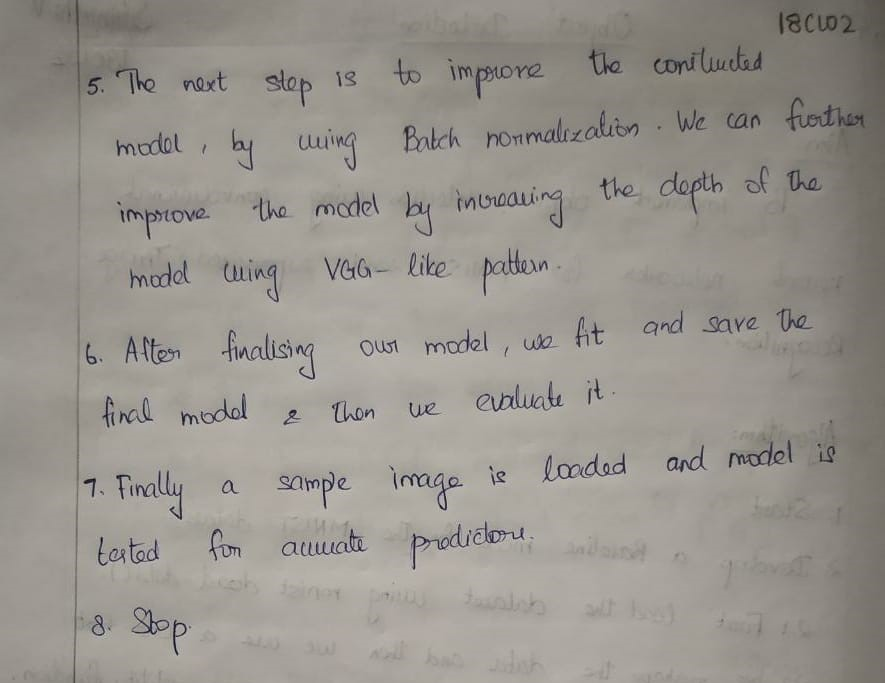 18CW02
5. The next step is to improve the constructed
model, by using Batch normalization. We can further
improve the model by increasing the depth of the
model using VGG-like pattern.
6. After finalising our model, we fit and save the
final model & then we evaluate it.
7. Finally a sample image is loaded and model is
tested for accurate predictions.
8. Stop.